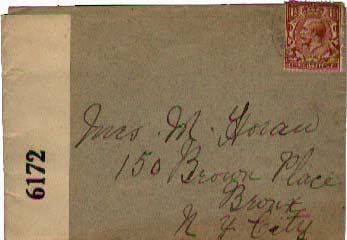 6172
Mrs. M. Horan
150 Brown Place
Bronx
N Y City